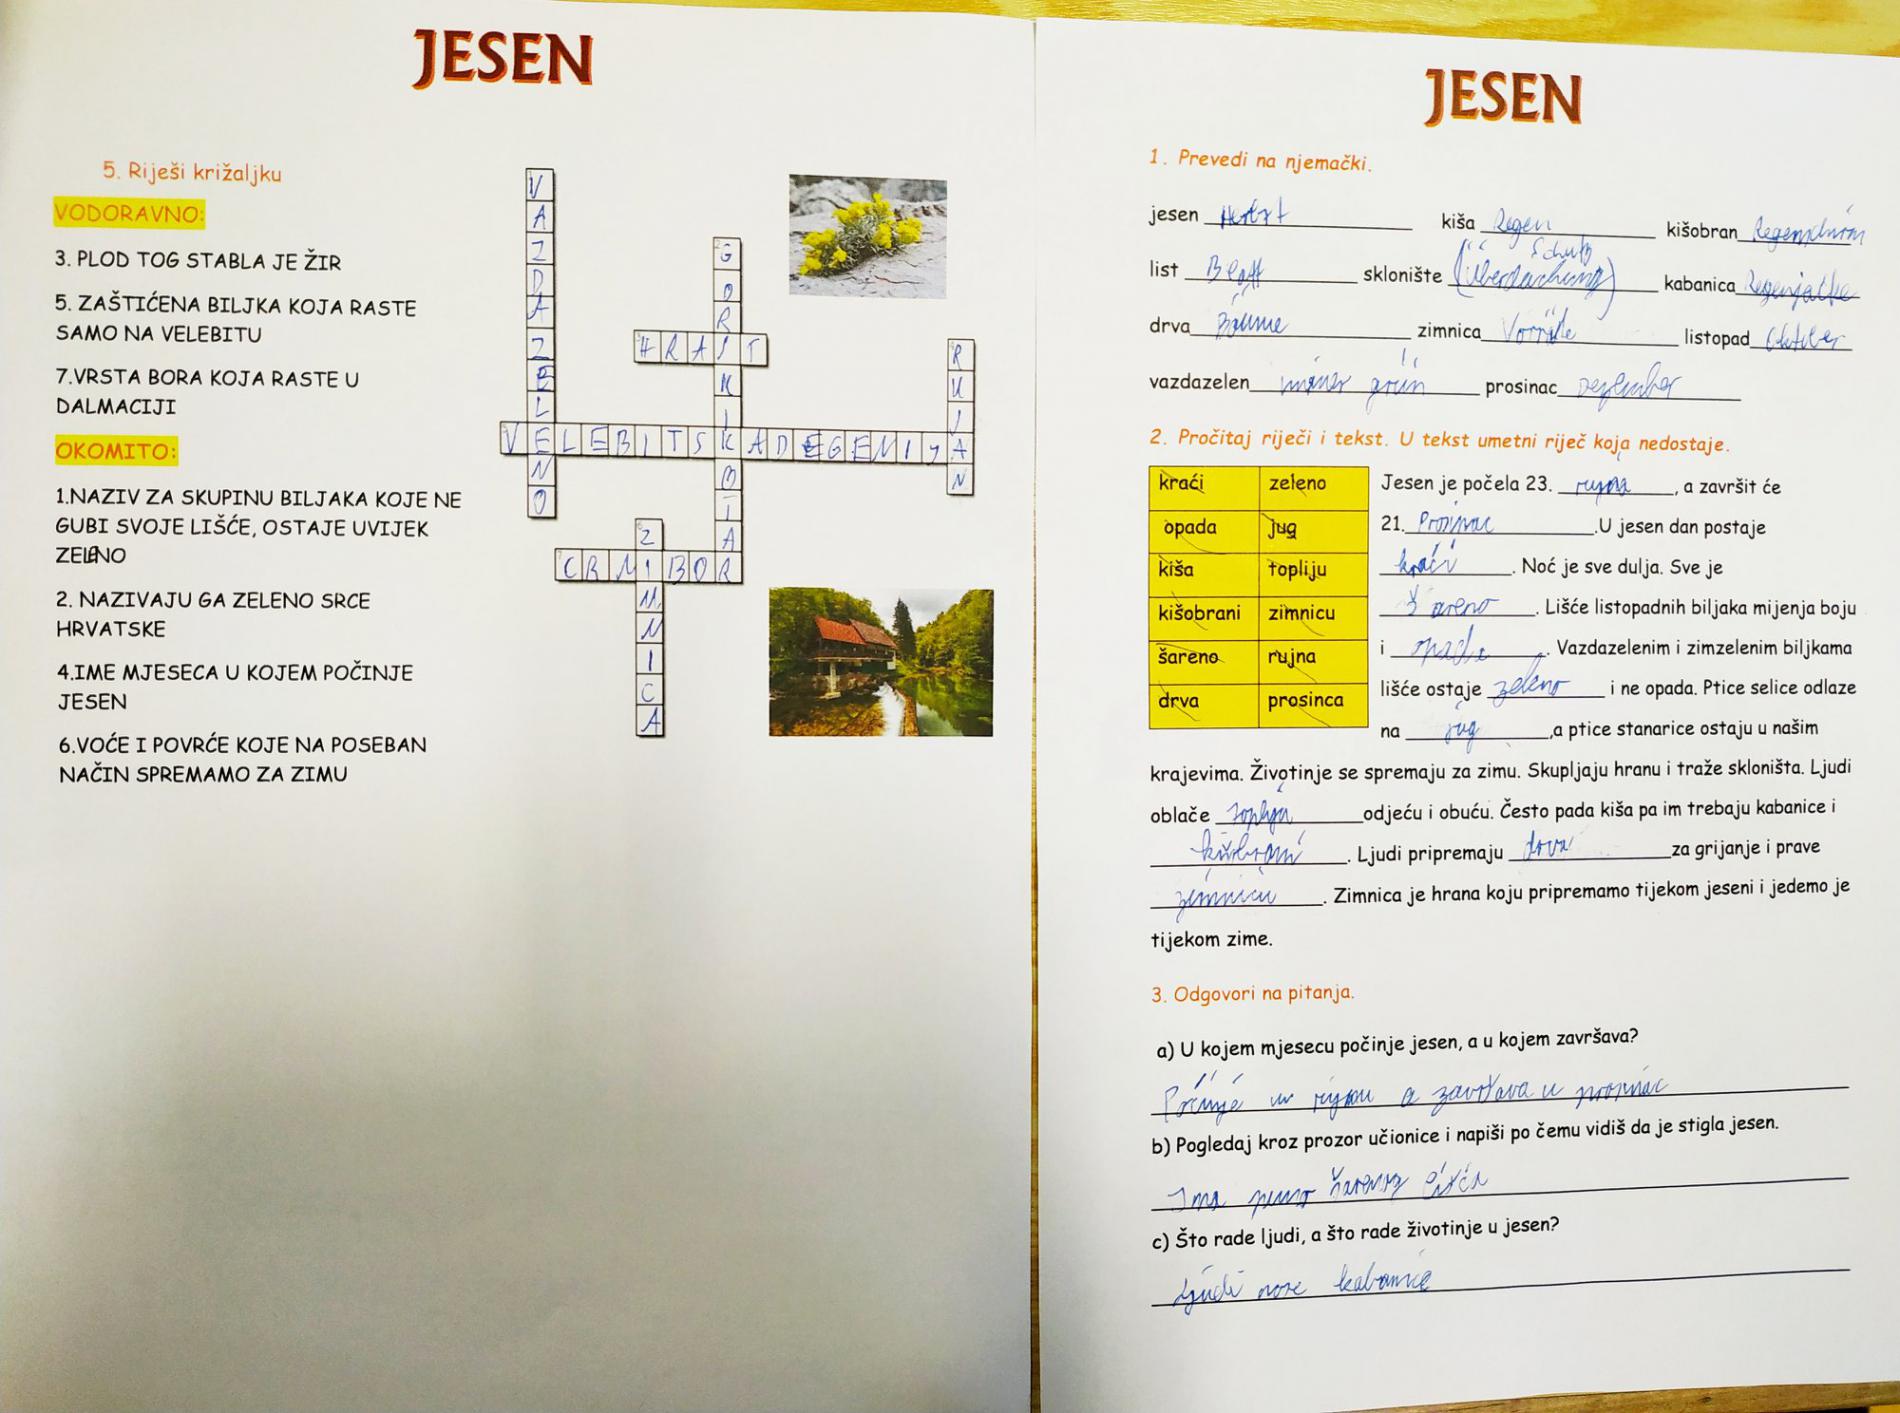 JESEN
5. Riješi križaljku
VODORAVNO:
3. PLOD TOG STABLA JE ŽIR
5. ZAŠTIĆENA BILJKA KOJA RASTE
SAMO NA VELEBITU
7.VRSTA BORA KOJA RASTE U
DALMACIJI
OKOMITO:
1.NAZIV ZA SKUPINU BILJAKA KOJE NE
GUBI SVOJE LIŠĆE, OSTAJE UVIJEK
ZELENO
2. NAZIVAJU GA ZELENO SRCE
HRVATSKE
4.IME MJESECA U KOJEM POČINJE
JESEN
6.VOĆE I POVRĆE KOJE NA POSEBAN
NAČIN SPREMAMO ZA ZIMU
VAZDAZELENO
GORSKIKOTAR
HRAST
RUJAN
VELEBITSKADEGENIJA
ZIMNICA
CRNIBOR
JESEN
1. Prevedi na njemački.
jesen Herbst kiša Regen kišobran Regenschirm
list Blatt sklonište Schutz (Überdachung) kabanica Regenjacke
drva Bäume zimnica Vorräte listopad Oktober
vazdazelen immer grün prosinac
2. Pročitaj riječi i tekst. U tekst umetni riječ koja nedostaje.
kraći zeleno
opada jug
kiša topliju
kišobrani zimnicu
šareno rujna
drva prosinca
Jesen je počela 23. rujna, a završit će
21. Prosinac.U jesen dan postaje
kraći. Noć je sve dulja. Sve je
Šareno. Lišće listopadnih biljaka mijenja boju
i opada. Vazdazelenim i zimzelenim biljkama
lišće ostaje zeleno i ne opada. Ptice selice odlaze
na jug,a ptice stanarice ostaju u našim
krajevima. Životinje se spremaju za zimu. Skupljaju hranu i traže skloništa. Ljudi
oblače odjeću i obuću. Često pada kiša pa im trebaju kabanice i
kišobrani. Ljudi pripremaju drva za grijanje i prave
zimnicu. Zimnica je hrana koju pripremamo tijekom jeseni i jedemo je
tijekom zime.
3. Odgovori na pitanja.
a) U kojem mjesecu počinje jesen, a u kojem završava?
Počinje u rujnu a završava u prosinac
b) Pogledaj kroz prozor učionice i napiši po čemu vidiš da je stigla jesen.
Ima puno šarenog lišća
c) Što rade ljudi, a što rade životinje u jesen?
Ljudi nose kabanice